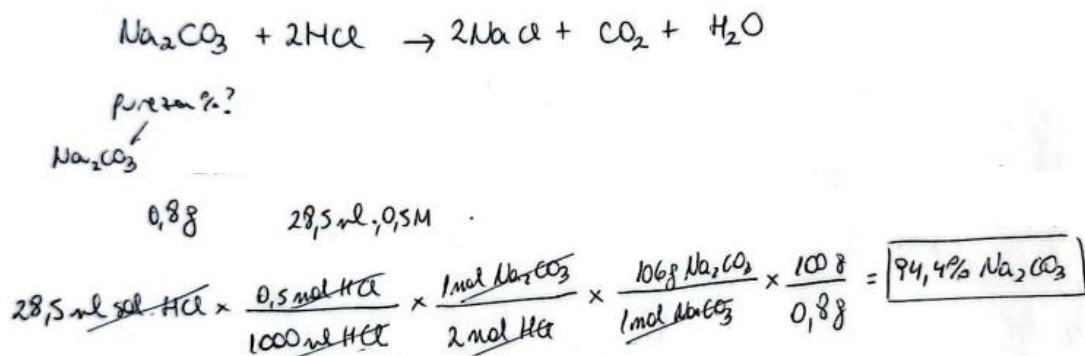 Na₂CO₃ + 2HCl → 2NaCl + CO₂ + H₂O
pureza %?
Na₂CO₃
0,8g 28,5 ml; 0,5M
28,5 ml sol. HCl × 0,5 mol HCl / 1000 ml HCl × 1 mol Na₂CO₃ / 2 mol HCl × 106g Na₂CO₃ / 1 mol Na₂CO₃ × 100 g / 0,8g = 94,4% Na₂CO₃